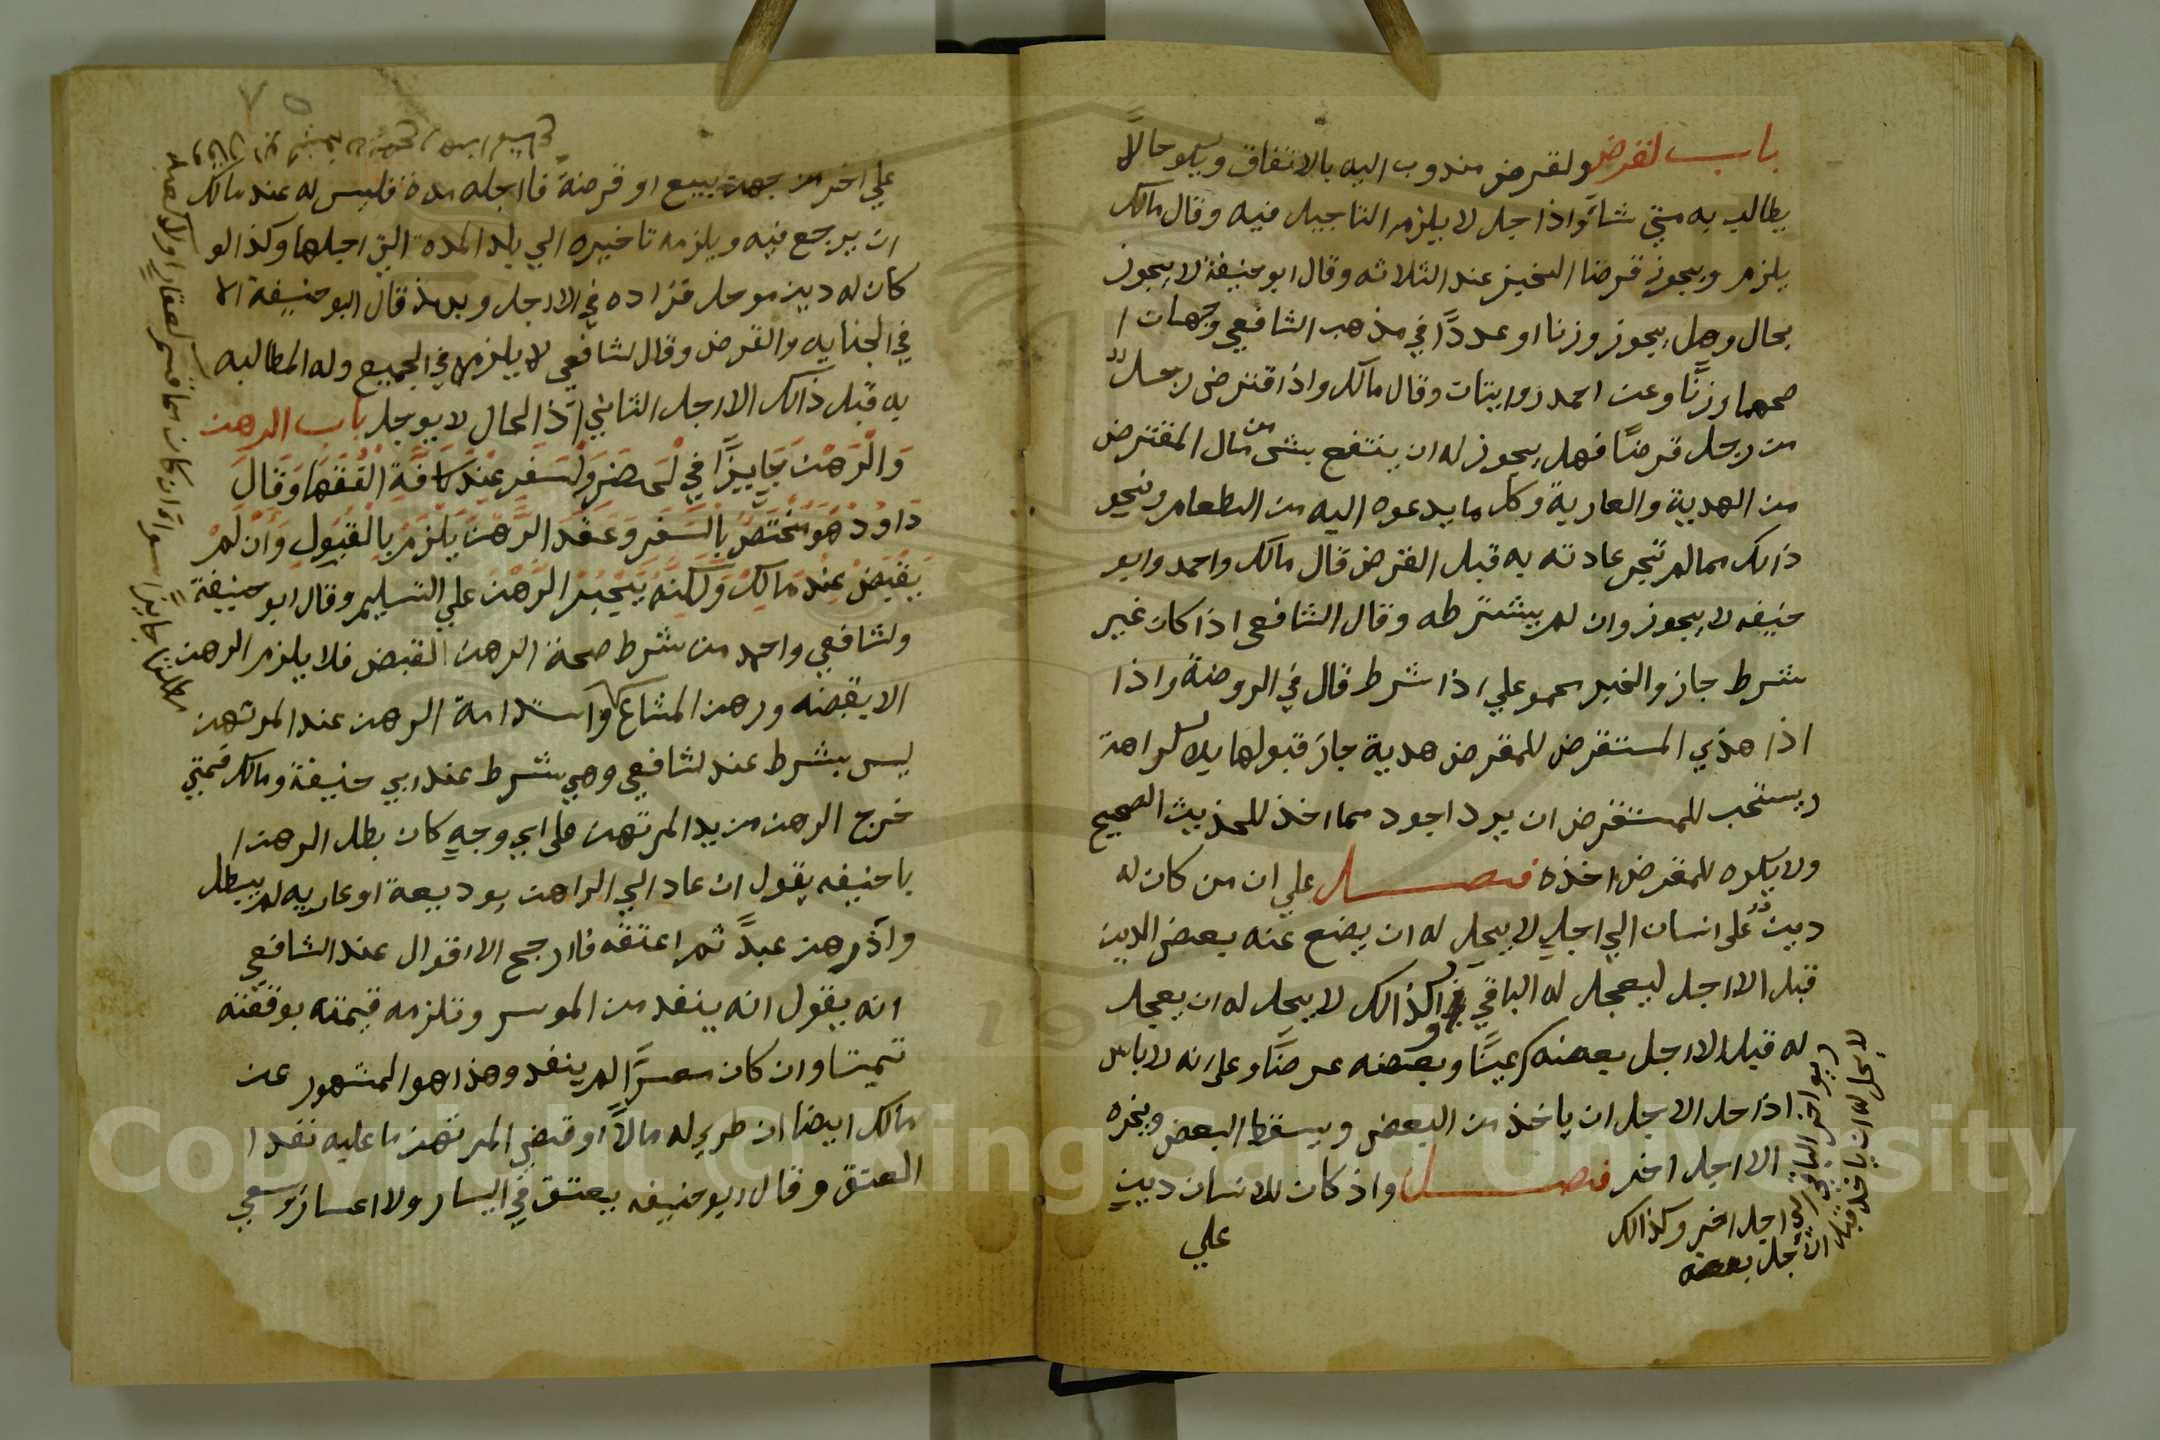 باب لقرض ولقرض مندوب اليه بالاتفاق ويكو حالاً
يطالب به متي شآ واذا جل لا يلزمه التاجيل فيه وقال مالك
يلزم ويجوز قرضا الخبز عند الثلاثه وقال ابو حنيفة لا يجوز
بحال وهل يجوز وزنا او عدداً في مذهب الشافعي وجهان ا
صحهما وزنًا وعن احمد روايتات وقال مالك واذا اقترض رجلٌ
من رجل قرضًا فهل يجوز له ان ينتفع بشى من مال المقترض
من الهدية والعارية وكل ما يدعوه اليه من الطعام ونحو
ذالك مما لم تجر عادته به قبل القرض قال مالك واحمد وابو
حنيفه لا يجوز وان لم يشترطه وقال الشافعي اذا كان غير
شرط جاز والخبر محمو علي اذا شرط قال في الروضة واذا
اذا هدي المستقرض للمقرض هدية جاز قبولها بلا كراهة
ويستحب للمستقرض ان يرد اجود مما اخذ للحذيث الصحيح
ولا يكره للمقرض اخذه فصل علي ان من كان له
دين على انسان الي اجلٍ لا يحل له ان يضع عنه بعض الدين
قبل الااجل ليعجل له الباقي وكذالك لا يحل له ان يعجل
له قبل الااجل بعضه عينًا وبعضه عرضًا وعلى انه لا باس
اذا حل الاجل ان ياخذ من البعض ويسقط البعض ويخره
الااجل اخر فصل واذ كان للانسان دين
علي
لا يحل له ان ياخذ قبل الاجل بعضه
ويواخر الباقي الي اجل اخر وكذالك
علي اخر من جهة بيع او قرضة فااجله مدة فليس له عند مالك
ان يرجع فيه ويلزمه تاخيره الي يلد المده التي اجلها وكذ الو
كان له دين موحل فزاده في الااجل وبهذ قال ابو حنيفة الا
في الجنايه والقرض وقال لشافعي لا يلزم في الجميع وله المطالبه
به قبل ذالك الااجل الثاني اذ الحال لا يوجل باب الرهن
وَالْرَهْن جَاييزًا في لحضر ولسفر عند كافة الفقها وقال
داود هو مختص بالسفر وعقد الرهن يلزم بالقبول وان لم
يقبض عند مالك ولكنه يجبر الرهن علي التسليم وقال ابو حنيفة
ولشافعي واحمد من شرط صحة الرهن القبض فلا يلزم الرهن
الا يقبضه ورهن المشاع واستدامة الرهن عند المرتهن
ليس بشرط عند لشافعي وهي شرط عند ابي حنيفة ومالك فمتي
خرج الرهن من يد المرتهن علي اي وجهٍ كان بطل الرهن ا
با حنيفه يقول ان عاد الي الراهن بوديعة او عاريه لم يبطل
واذ رهن عبدً ثم اعتقه فاارجح الااقوال عند الشافعي
انه يقول انه ينفد من الموسر وتلزمه قيمته
وان كان معسرًا لم ينفد وهذا هو المشهور عن
مالك ايضا ان طري له مالاً او قبض المرتهن ما عليه نفد ا
العتق وقال ابو حنيفه يعتق في اليسار ولا اعسار وسعي